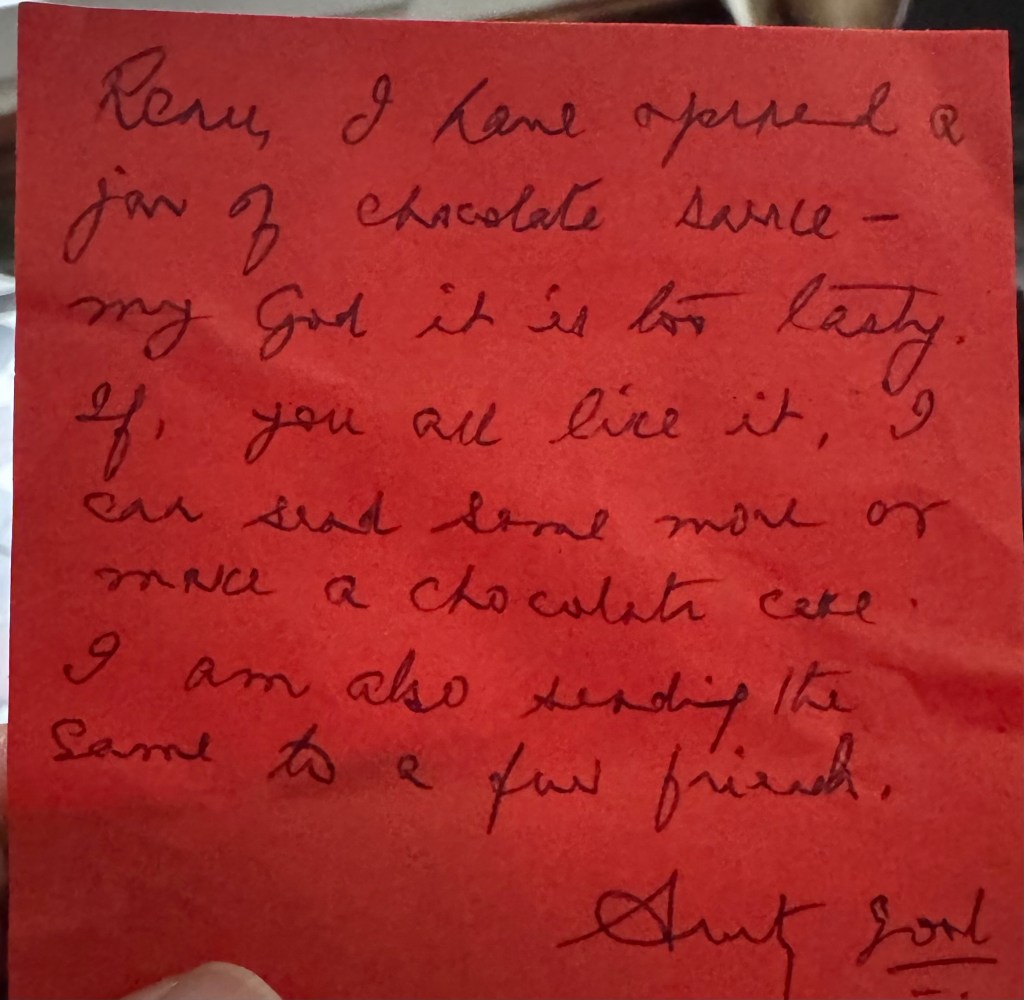 Renu, I have opened a
jar of chocolate sauce -
my God it is too tasty.
If, you all like it, I
can send some more or
make a chocolate cake.
I am also sending the
same to a few friends.
Aunty